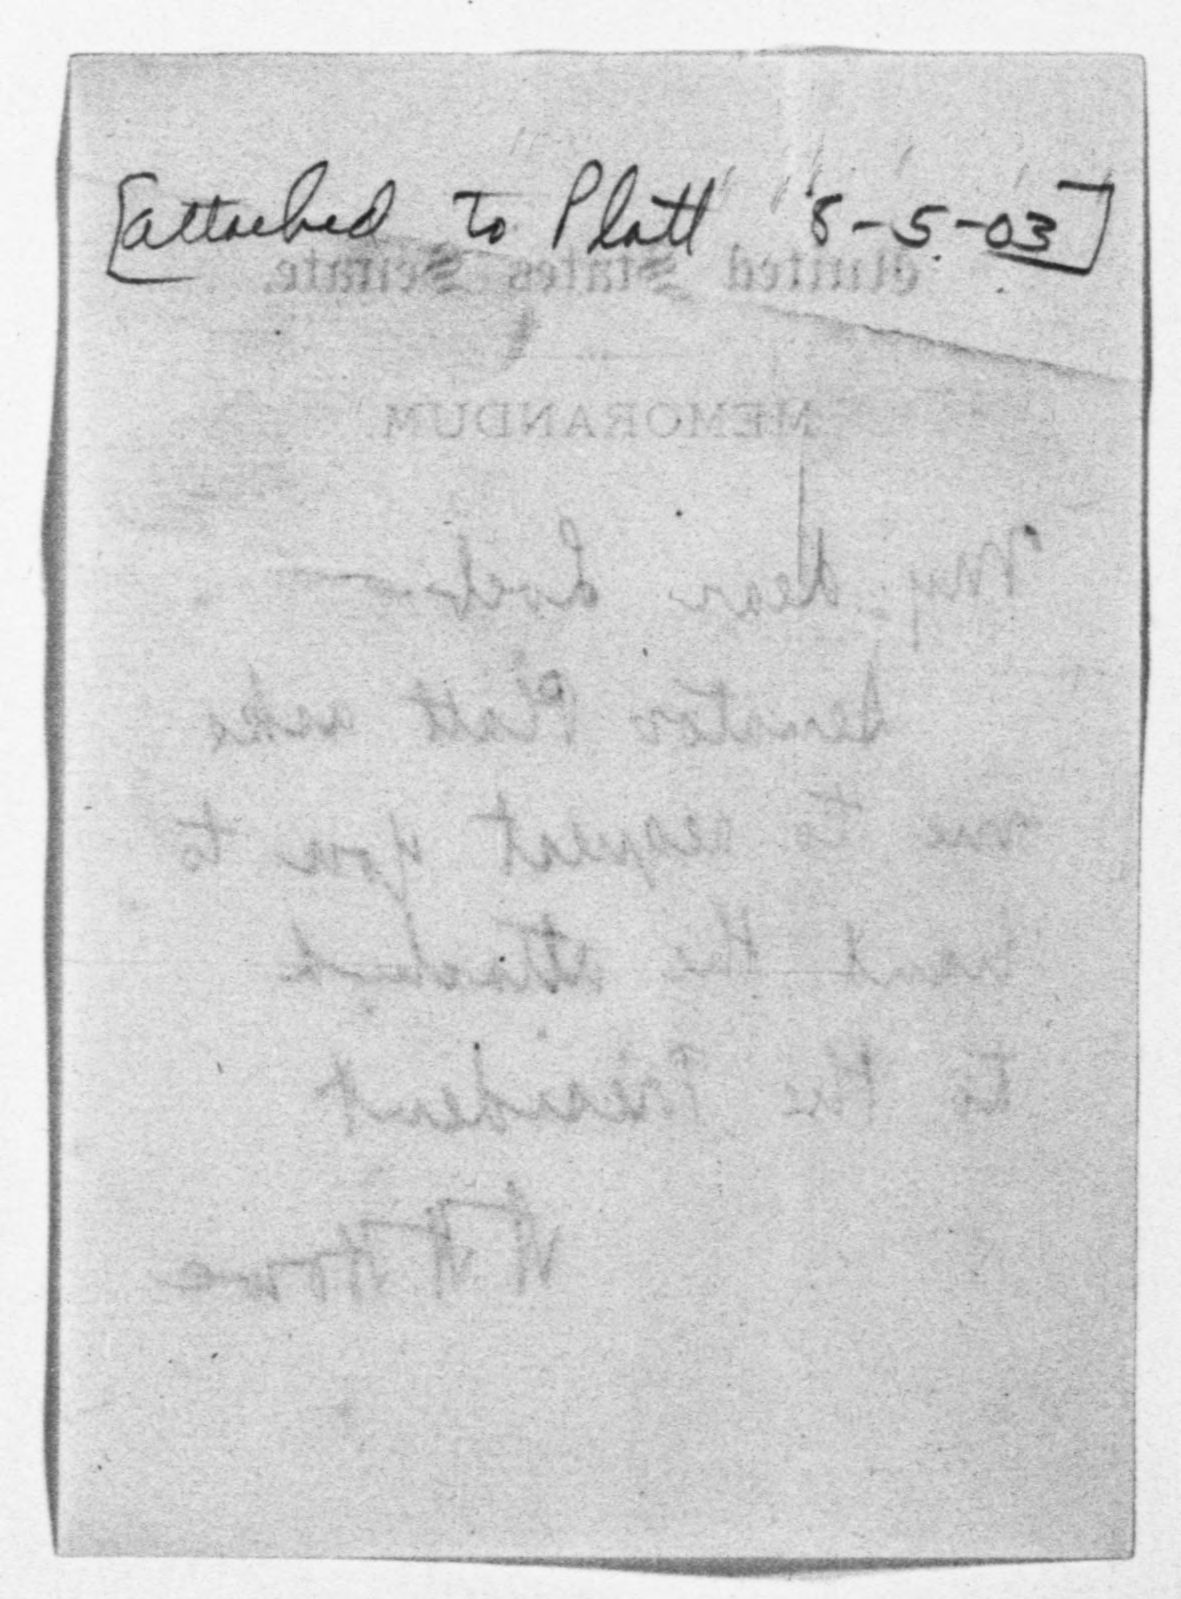 [attached to Platt 8-5-03]
United States Senate.
MEMORANDUM.
My dear Loeb
Senator Platt asks
me to request you to
hand the attached
to the President